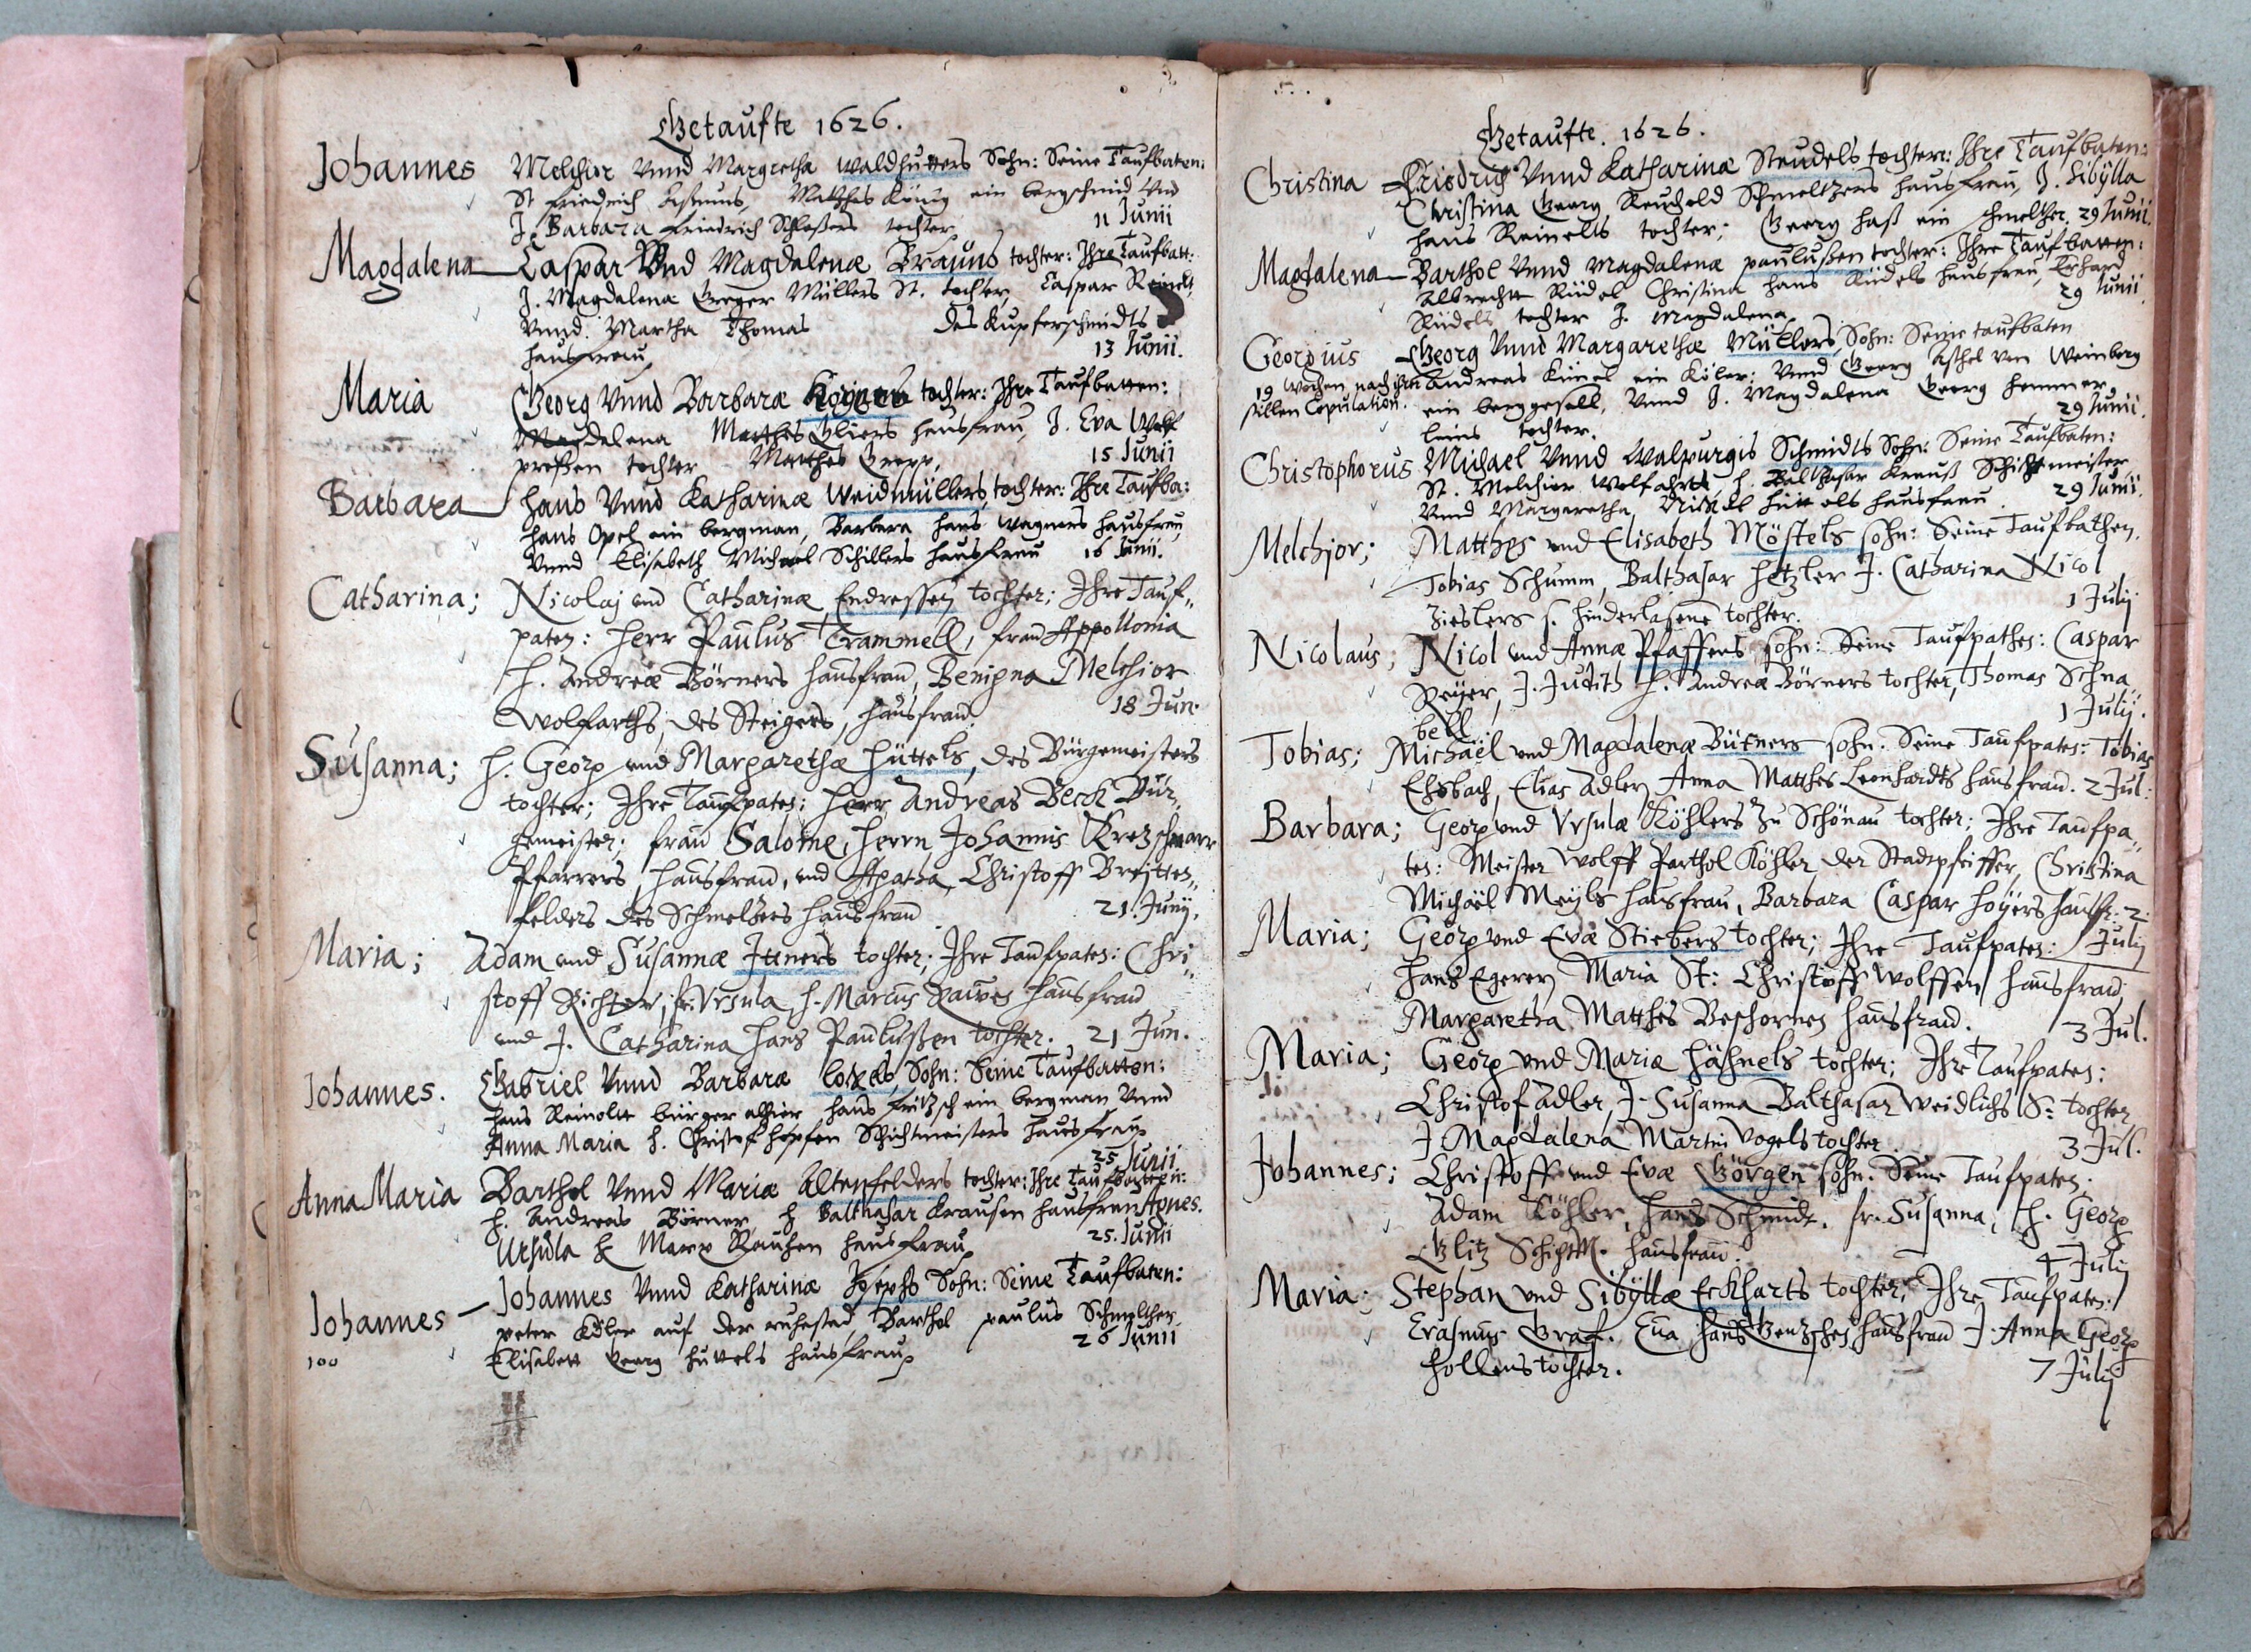 Getaufte 1626.
Johannes Melchior Vnnd Margretha Waldhutters Sohn: Seine Taufbaten:
St Friedrich Matthes König ein bergschmid Vnd
J. Barbara Friedrich Schloßers tochter 11 Junii
Magdalena Caspar Vnd Magdalenæ Brauns tochter: Ihre Taufbatt:
J. Magdalena Greger Müllers St. tochter, Caspar Reinelt,
Vnnd Martha Thomas des Kupferschmidts
hausfrau 13 Junii.
Maria Georg Vnnd Barbaræ tochter: Ihre Taufbatten:
Magdalena Matthes Gliers hausfrau, J. Eva Wolf
preßen tochter Matthes 15 Junii
Barbara Hans Vnnd Katharinæ Weidmüllers, tochter: Ihre Taufba:
Hans Opel ein bergman, Barbara Hans Wagners hausfrau,
Vnnd Elisabeth Michael Schillers hausfrau 16 Junii.
Catharina; Nicolaj und Catharinæ Endressen tochter; Ihre Tauf„
paten: Herr Paulus Trammell, frau Appollonia
H. Andreæ Börners hausfrau, Benigna Melchior
Wolfarths, des Steigers, hausfrau. 18 Jun.
Susanna; H. Georg und Margarethæ Hüttels, des Bürgemeisters
tochter; Ihre Taufpaten: Herr Andreas Beck Bür„
gemeister; frau Salome, Herrn Johannis Kretzschmarr
Pfarrers hausfrau, und Agatha Christoff Breitten„
felders des Schmeltzers hausfrau 21. Junij.
Maria; Adam und Susannæ Itners tochter. Ihre Taufpaten: Chri„
stoff Richter, fr. Vrsula, H. Marcus Rauen hausfrau
und J. Catharina Hans Paulußen tochter. 21 Jun.
Johannes. Gabriel Vnnd Barbaræ Sohn: Seine Taufbatten:
Hans Reinoltt bürger alhier Hans Fritzsch ein bergman Vnnd
Anna Maria H. Christof Hopfen Schichtmeisters hausfrau
25 Junii
Anna Maria Barthel Vnnd Mariæ Altenfelders tochter: Ihre Taufbatten:
H. Andreas Börner, H Balthasar Krausen hausfrau Agnes.
Ursula H Marx Rauhen hausfrau 25. Junii
Johannes Johannes Vnnd Katharinæ Josephs Sohn: Seine Taufbaten:
peter Köler auf der ruhestad, Barthol paulus Schmeltzer
100 Elisabett Georg Huttels hausfrau 26 Junii
Getaufte. 1626.
Christina Friedrich Vnnd Katharinæ Steudels tochter: Ihre Taufbaten:
Christina Georg Reuhold Schmeltzers hausfrau, J. Sibÿlla
Hans Reinelts tochter; Georg Haß ein schmeltzer. 29 Junii.
Magdalena Barthol Vnnd Magdalenæ paulußen tochter: Ihre Taufbatten:
Albrecht Rüdel Christina Hans Rüdels hausfrau, Erhard
Rüdels tochter J. Magdalena. 29 Junii
Georgius Georg Vnnd Margarethæ Müllers, Sohn: Seine taufbaten
19 wochen nach ihrer Andreas Künel ein Köler; Vnnd Georg Aßhel von Weinberg
stillen Copulation. ein berggesell, Vnnd J. Magdalena Georg Hemmer
leins tochter. 29 Junii.
Christophorus Michael Vnnd Walpurgis Schmidts Sohn: Seine Taufbaten:
St. Melchior Wolfahrtt H. Balthasar Krauß Schichtmeister
Vnnd Margaretha Nickel hausfrau. 29 Junii.
Melchior; Matthes und Elisabeth Möstels sohn: Seine Taufbathen.
Tobias Schumm, Balthasar Hetzler J. Catharina Nicol
Zieslers s. hinderlasene tochter. 1 Julij
Nicolaus; Nicol und Annæ Pfaffens sohn: Seine Taufpathen: Caspar
Reÿer, J. Judith H. Andreæ Börners tochter, Thomas Schna„
bell. 1 Julij.
Tobias; Michaël und Magdalenæ Bütners sohn. Seine Taufpaten: Tobias
Ehsbach, Elias Adler, Anna Matthes Leonhardts hausfrau. 2 Jul:
Barbara; Georg und Vrsulæ Köhlers Zu Schönau tochter; Ihre Taufpa„
ten: Meister Wolff Barthol Köhler der Stadtpfeiffer, Christina
Michaël Meÿls hausfrau, Barbara Caspar Hoÿers hausfr. 2.
Maria; Georg und Evæ Stiebers tochter; Ihre Taufpaten: Julij
Hans Egerer, Maria St: Christoff Wolffen hausfrau
Margaretha Matthes Beschornes hausfrau. 3 Jul.
Maria; Georg und Mariæ Hähnels tochter; Ihre Taufpaten:
Christof Adler, J. Susanna Balthasar Weidlichs S: tochter
J. Magdalena Martin Vogels tochter. 3 Jul.
Johannes; Christoff und Evæ Görgen sohn. Seine Taufpaten.
Adam Köhler, Hans Schmidt. fr. Susanna, H. Georg
Glitz SchichtM. hausfrau. 4 Julij
Maria; Stephan und Sibÿllæ Eckharts tochter, Ihre Taufpaten:
Erasmus Graf. Eva Hans Gentzschen hausfrau J. Anna Georg
Hollens tochter. 7 Julij